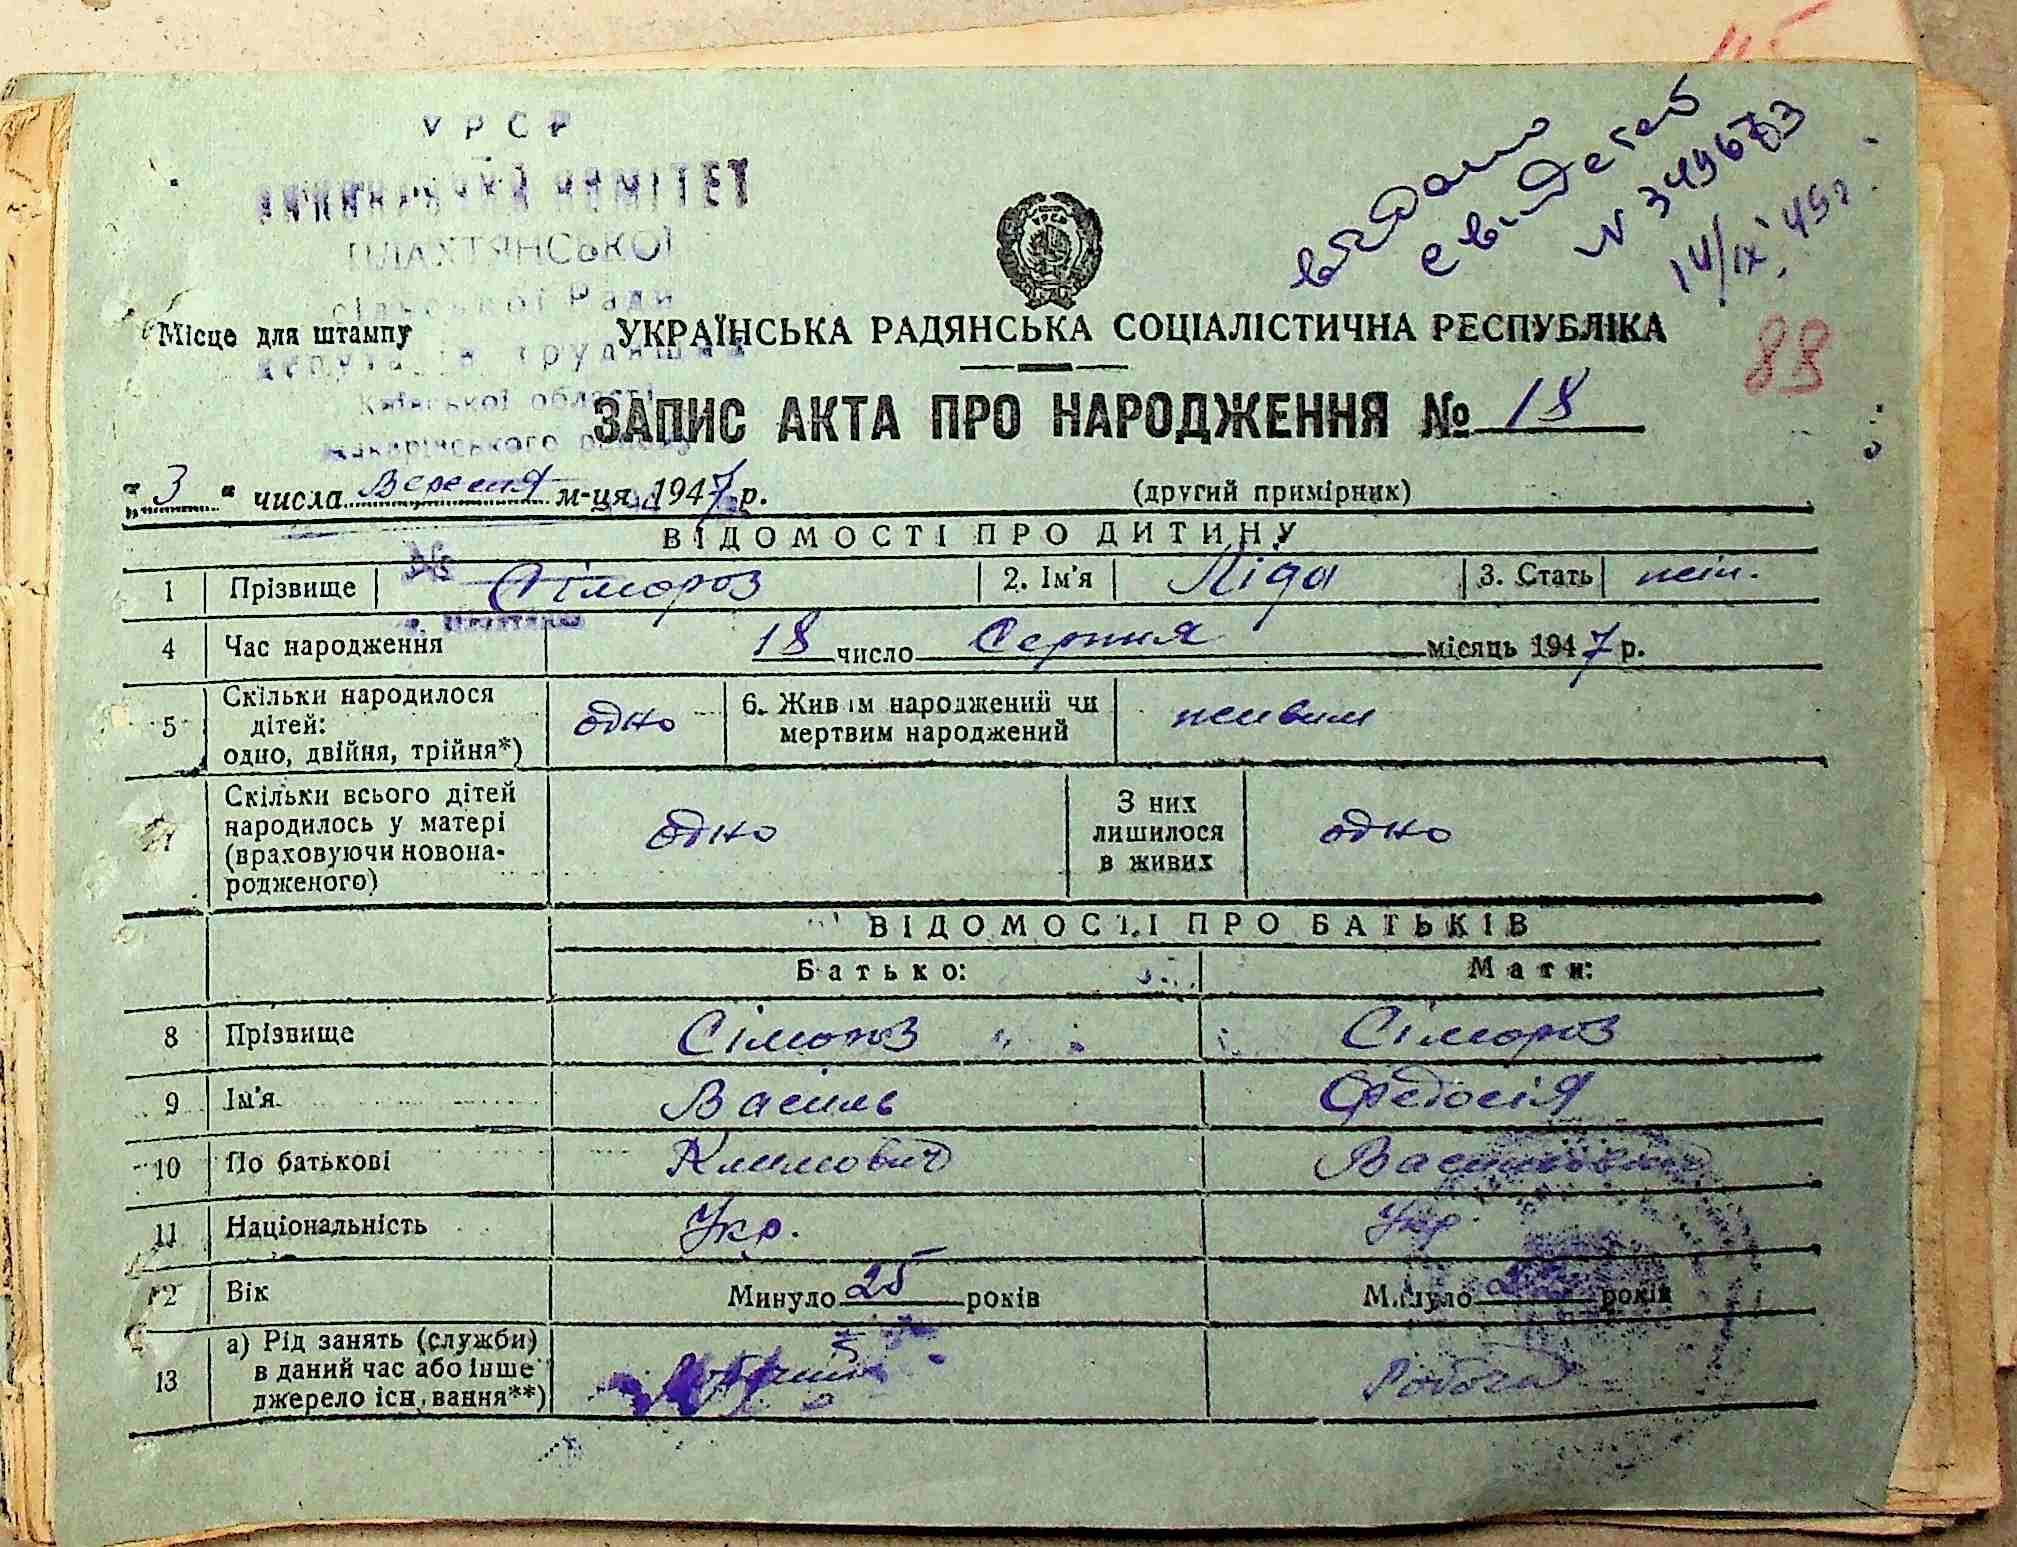 У Р С Р
ВИКОНАВЧИЙ КОМІТЕТ
ПЛАХТЯНСЬКОЇ
сільської Ради
депутатів трудящих
Київської області
Макарівського району
№
видано
свідотел
N 349673
14/IX 49г
88
Місце для штампу
УКРАЇНСЬКА РАДЯНСЬКА СОЦІАЛІСТИЧНА РЕСПУБЛІКА
ЗАПИС АКТА ПРО НАРОДЖЕННЯ № 18
"3" числа Вересня м-ця 1947 р. (другий примірник)
ВІДОМОСТІ ПРО ДИТИНУ
1 Прізвище Сімороз 2. Ім'я Ліда 3. Стать жін.
4 Час народження 18 число Серпня місяць 1947 р.
5 Скільки народилося дітей: одно, двійня, трійня*) одно 6. Живим народжений чи мертвим народжений живим
7 Скільки всього дітей народилось у матері (враховуючи новонародженого) одно З них лишилося в живих одно
ВІДОМОСТІ ПРО БАТЬКІВ
Батько: Мати:
8 Прізвище Сімороз Сімороз
9 Ім'я Василь Федосія
10 По батькові Климович Василівна
11 Національність Укр. Укр.
12 Вік Минуло 25 років Минуло років
13 а) Рід занять (служби) в даний час або інше джерело існування**) Робочая